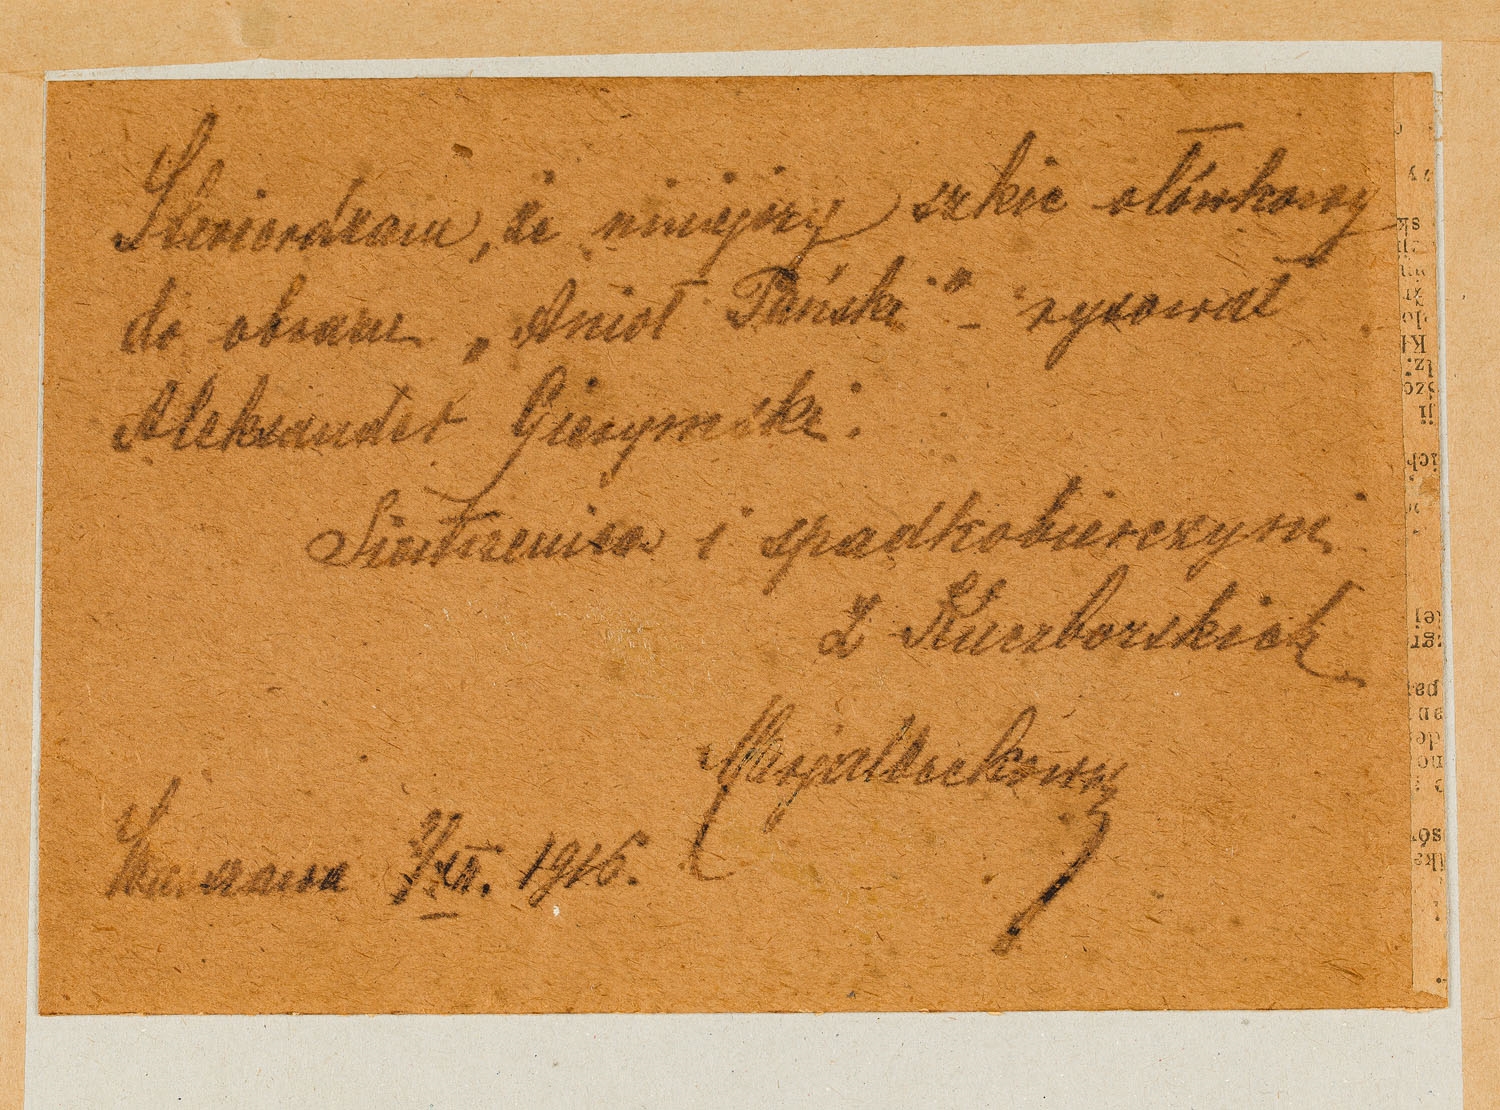 Stwierdzam, że niniejszy szkic ołówkowy
do obrazu „Anioł Pański" - rysował
Aleksander Gierymski.
Siostrzenica i spadkobierczyni
Z Kuczborskich
Warszawa XII. 1916.